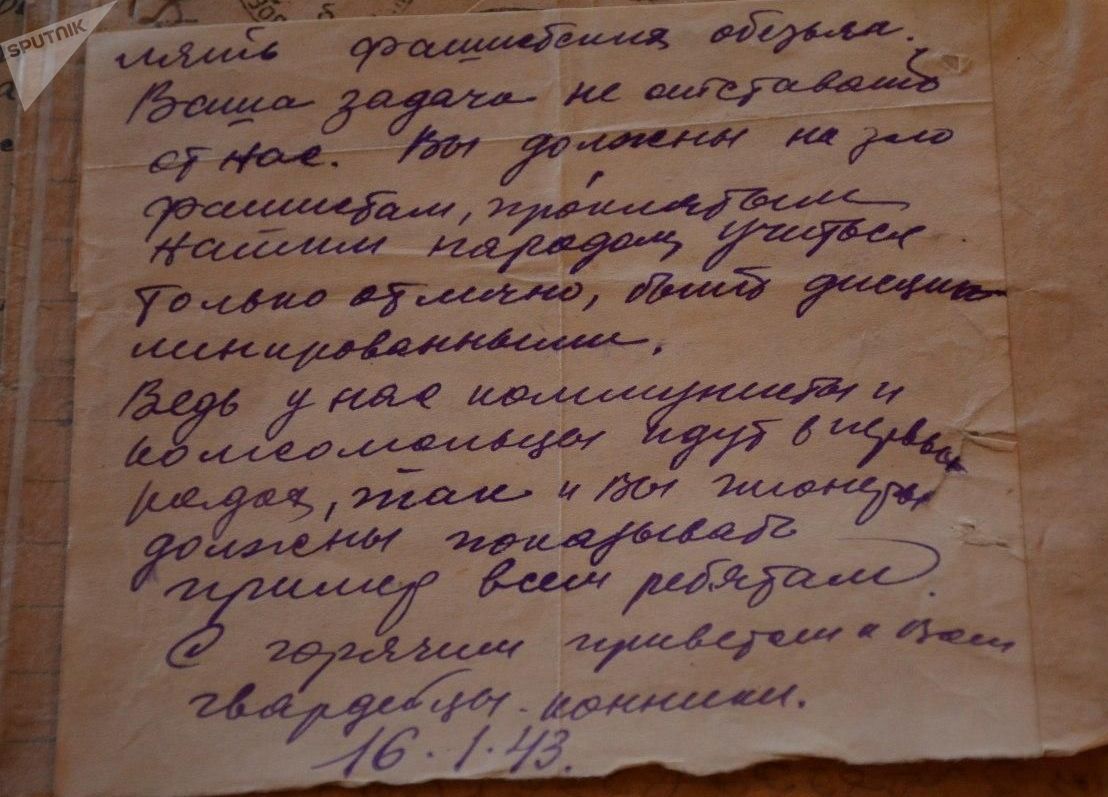 SPUTNIK
лять фашистских обезьян.
Ваша задача не отставать
от нас. Вы должны на зло
фашистам, проклятым
нашим народом, учиться
только отлично, быть дисцип
линированными.
Ведь у нас коммунисты и
комсомольцы идут в первых
рядах, так и Вы пионеры
должны показывать
пример всем ребятам.
С горячим приветом к Вам
гвардейцы-конники.
16.1.43.